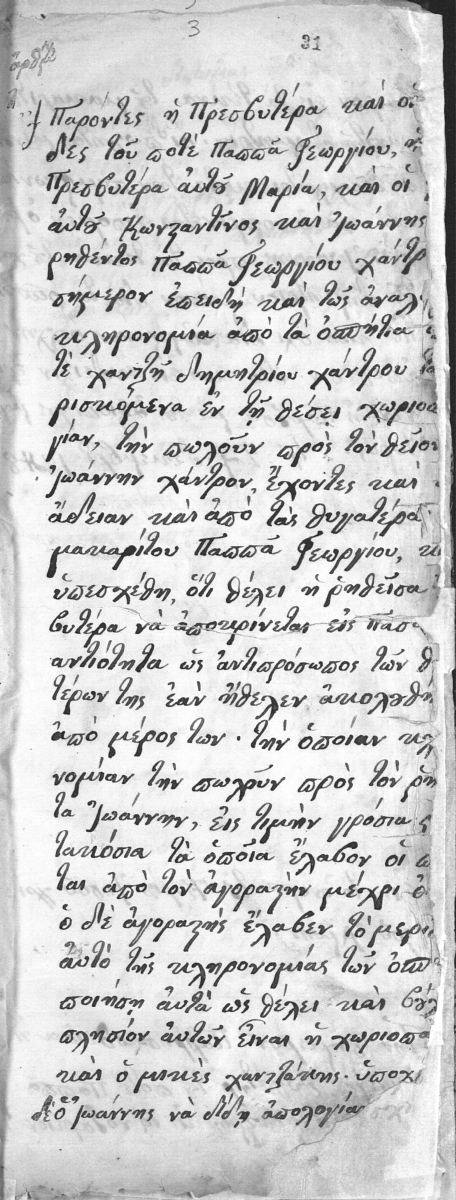 3
31
Παρόντες ἡ Πρεσβυτέρα καὶ οἱ
δες τοῦ ποτὲ Παππᾶ Γεωργίου, ἡ
Πρεσβυτέρα ἀυτοῦ Μαρία, καὶ οἱ
ἀυτοῦ Κωνσταντῖνος καὶ Ἰωάννης
ρηθέντος Παππᾶ Γεωργίου χάντρ
σήμερον ἐπειδὴ καὶ τῶς ἀναλ
κληρονομία ἀπὸ τὰ ὁππήτια
τὲ χαντζῆ δημητρίου χάντρου
ρισκόμενα ἐν τῇ θέσει χωριοπα
γίαν, τὴν πωλοῦν πρὸς τὸν θεῖον
Ἰωάννην χάντρον, ἔχοντες καὶ
ἄδειαν καὶ ἀπὸ τὰς θυγατέρα
μακαρίτου Παππᾶ Γεωργίου, κ
ὑπεσχέθη, ὅτι θέλει ἡ ῥηθεῖσα
βυτέρα νὰ ἀποκρίνεται εἰς πᾶσα
αντιότητα ὡς ἀντιπρόσωπος τῶν θ
τέρων της ἐὰν ἤθελεν ἀκολουθή
ἀπὸ μέρος των · τὴν ὁποίαν κλ
νομίαν τὴν πωλοῦν πρὸς τὸν ῥη
τα Ἰωάννην, εἰς τιμὴν γρόσια
τακόσια τὰ ὁποῖα ἔλαβον οἱ π
ται ἀπὸ τὸν ἀγοραστὴν μέχρι ὀ
ὁ δὲ ἀγοραστὴς ἔλαβεν τὸ μερι
ἀυτὸ τῆς κληρονομίας τῶν ὁππ
ποιήσῃ ἀυτὰ ὡς θέλει καὶ βού
πλησίον ἀυτῶν εἶναι ἡ χωριοπα
καὶ ὁ μικὲς χαντζάκης · ὑποχ
δὲ ὁ Ἰωάννης νὰ δίδῃ ἀπολογία